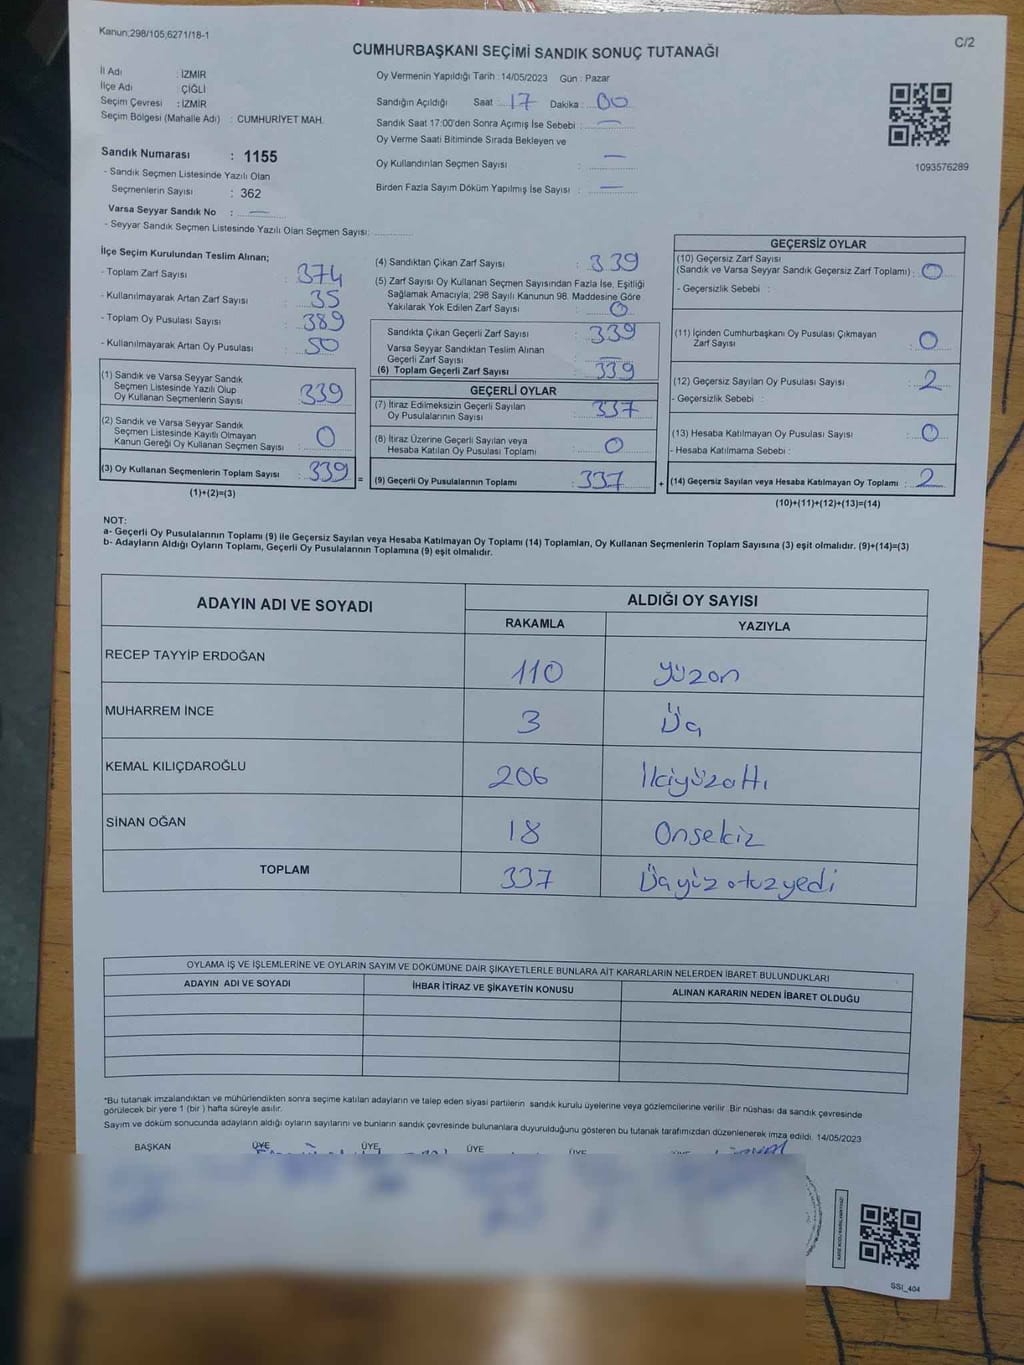 Kanun;298/105;6271/18-1
C/2
CUMHURBAŞKANI SEÇİMİ SANDIK SONUÇ TUTANAĞI
İl Adı : İZMİR
İlçe Adı : ÇİĞLİ
Seçim Çevresi : İZMİR
Seçim Bölgesi (Mahalle Adı) : CUMHURİYET MAH.
Sandık Numarası : 1155
- Sandık Seçmen Listesinde Yazılı Olan
Seçmenlerin Sayısı : 362
Varsa Seyyar Sandık No : —
- Seyyar Sandık Seçmen Listesinde Yazılı Olan Seçmen Sayısı:
Oy Vermenin Yapıldığı Tarih : 14/05/2023 Gün : Pazar
Sandığın Açıldığı Saat : 17 Dakika : 00
Sandık Saat 17:00'den Sonra Açımış İse Sebebi : —
Oy Verme Saati Bitiminde Sırada Bekleyen ve
Oy Kullandırılan Seçmen Sayısı : —
Birden Fazla Sayım Döküm Yapılmış İse Sayısı : —
1093576289
İlçe Seçim Kurulundan Teslim Alınan;
- Toplam Zarf Sayısı : 374
- Kullanılmayarak Artan Zarf Sayısı : 35
- Toplam Oy Pusulası Sayısı : 389
- Kullanılmayarak Artan Oy Pusulası : 50
(1) Sandık ve Varsa Seyyar Sandık
Seçmen Listesinde Yazılı Olup
Oy Kullanan Seçmenlerin Sayısı : 339
(2) Sandık ve Varsa Seyyar Sandık
Seçmen Listesinde Kayıtlı Olmayan
Kanun Gereği Oy Kullanan Seçmen Sayısı : 0
(3) Oy Kullanan Seçmenlerin Toplam Sayısı : 339
(1)+(2)=(3)
=
(4) Sandıktan Çıkan Zarf Sayısı : 339
(5) Zarf Sayısı Oy Kullanan Seçmen Sayısından Fazla İse, Eşitliği
Sağlamak Amacıyla; 298 Sayılı Kanunun 98. Maddesine Göre
Yakılarak Yok Edilen Zarf Sayısı : 0
Sandıkta Çıkan Geçerli Zarf Sayısı : 339
Varsa Seyyar Sandıktan Teslim Alınan
Geçerli Zarf Sayısı : —
(6) Toplam Geçerli Zarf Sayısı : 339
GEÇERLİ OYLAR
(7) İtiraz Edilmeksizin Geçerli Sayılan
Oy Pusulalarının Sayısı : 337
(8) İtiraz Üzerine Geçerli Sayılan veya
Hesaba Katılan Oy Pusulası Toplamı : 0
(9) Geçerli Oy Pusulalarının Toplamı : 337
+
GEÇERSİZ OYLAR
(10) Geçersiz Zarf Sayısı
(Sandık ve Varsa Seyyar Sandık Geçersiz Zarf Toplamı) : 0
- Geçersizlik Sebebi :
(11) İçinden Cumhurbaşkanı Oy Pusulası Çıkmayan
Zarf Sayısı : 0
(12) Geçersiz Sayılan Oy Pusulası Sayısı : 2
- Geçersizlik Sebebi :
(13) Hesaba Katılmayan Oy Pusulası Sayısı : 0
- Hesaba Katılmama Sebebi :
(14) Geçersiz Sayılan veya Hesaba Katılmayan Oy Toplamı : 2
(10)+(11)+(12)+(13)=(14)
NOT:
a- Geçerli Oy Pusulalarının Toplamı (9) ile Geçersiz Sayılan veya Hesaba Katılmayan Oy Toplamı (14) Toplamları, Oy Kullanan Seçmenlerin Toplam Sayısına (3) eşit olmalıdır. (9)+(14)=(3)
b- Adayların Aldığı Oyların Toplamı, Geçerli Oy Pusulalarının Toplamına (9) eşit olmalıdır.
ADAYIN ADI VE SOYADI
ALDIĞI OY SAYISI
RAKAMLA YAZIYLA
RECEP TAYYİP ERDOĞAN 110 yüzon
MUHARREM İNCE 3 Üç
KEMAL KILIÇDAROĞLU 206 İkiyüzaltı
SİNAN OĞAN 18 Onsekiz
TOPLAM 337 Üçyüz otuzyedi
OYLAMA İŞ VE İŞLEMLERİNE VE OYLARIN SAYIM VE DÖKÜMÜNE DAİR ŞİKAYETLERLE BUNLARA AİT KARARLARIN NELERDEN İBARET BULUNDUKLARI
ADAYIN ADI VE SOYADI İHBAR İTİRAZ VE ŞİKAYETİN KONUSU ALINAN KARARIN NEDEN İBARET OLDUĞU
*Bu tutanak imzalandıktan ve mühürlendikten sonra seçime katılan adayların ve talep eden siyasi partilerin sandık kurulu üyelerine veya gözlemcilerine verilir. Bir nüshası da sandık çevresinde
görülecek bir yere 1 (bir ) hafta süreyle asılır.
Sayım ve döküm sonucunda adayların aldığı oyların sayılarını ve bunların sandık çevresinde bulunanlara duyurulduğunu gösteren bu tutanak tarafımızdan düzenlenerek imza edildi. 14/05/2023
BAŞKAN ÜYE ÜYE ÜYE ÜYE
SSI_404